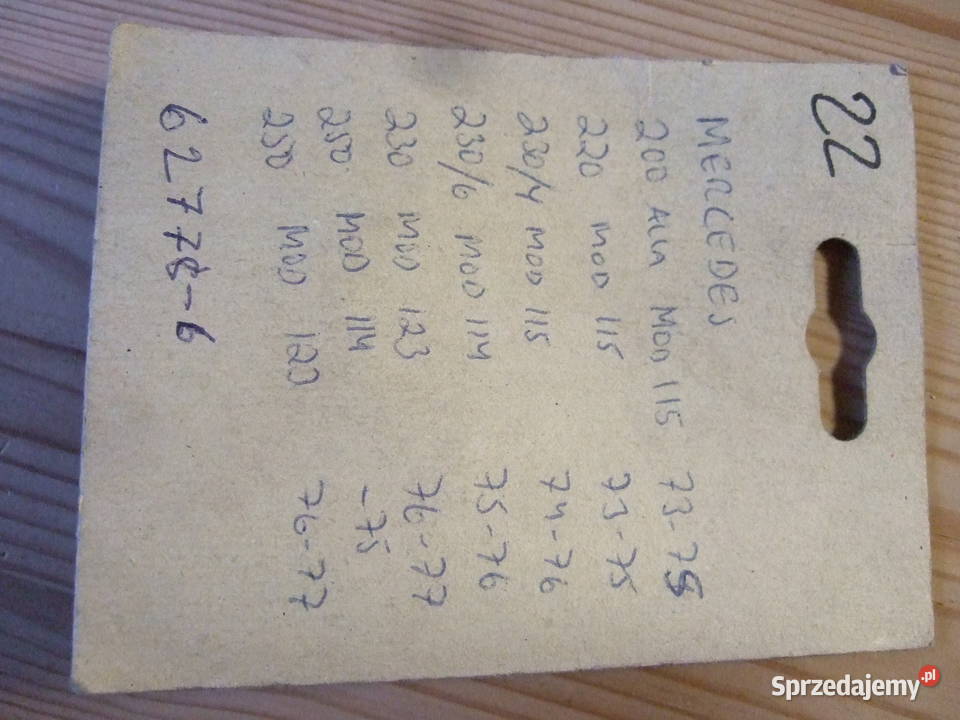 22
MERCEDES
200 ALLN MOD 115 73-75
220 MOD 115 73-75
230/4 MOD 115 74-76
230/6 MOD 114 75-76
230 MOD 123 76-77
250 MOD 114 -75
250 MOD 120 76-77
62778-6
Sprzedajemy.pl